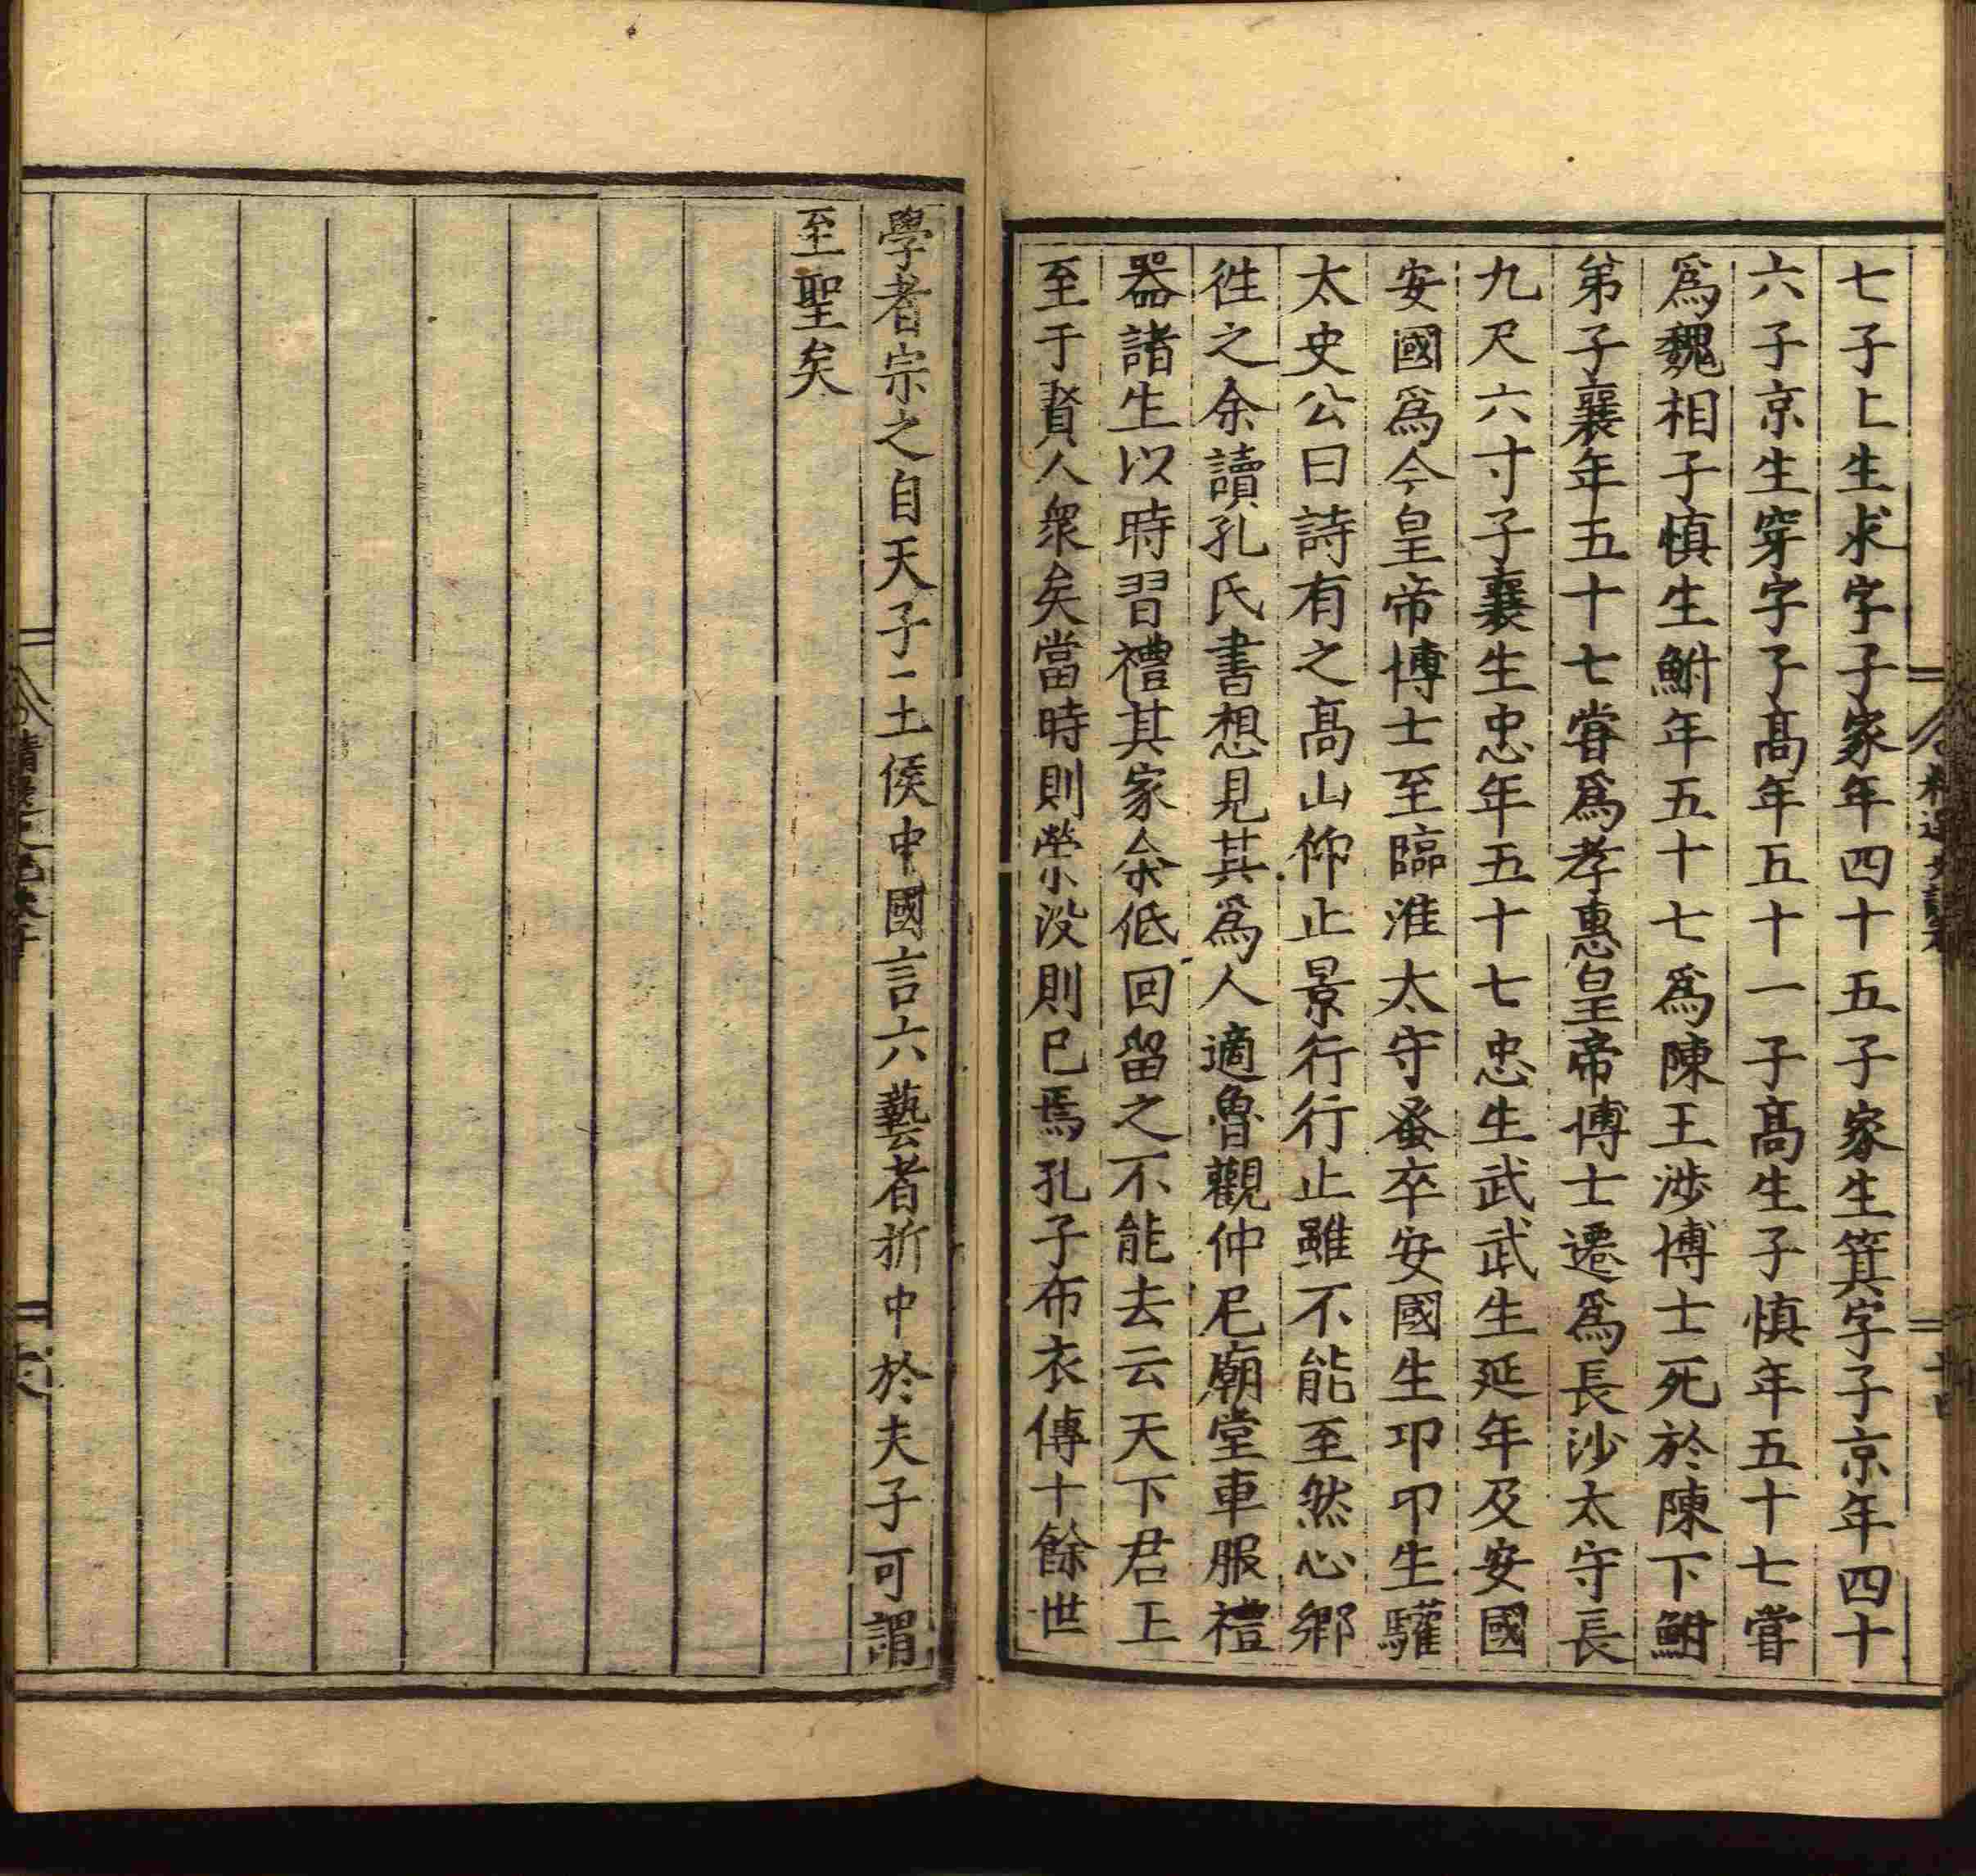 七子上生求字子家年四十五子家生箕字子京年四十
六子京生穿字子髙年五十一子髙生子慎年五十七嘗
爲魏相子慎生鮒年五十七爲陳王渉博士死於陳下鮒
弟子襄年五十七嘗爲孝惠皇帝博士遷爲長沙太守長
九尺六寸子襄生忠年五十七忠生武武生延年及安國
安國爲今皇帝博士至臨淮太守蚤卒安國生卬卬生驩
太史公曰詩有之髙山仰止景行行止雖不能至然心鄉
徃之余讀孔氏書想見其爲人適魯觀仲尼廟堂車服禮
器諸生以時習禮其家余低回留之不能去云天下君王
至于賢人衆矣當時則榮没則巳焉孔子布衣傳十餘世
學者宗之自天子土侯中國言六藝者折中於夫子可謂
至聖矣